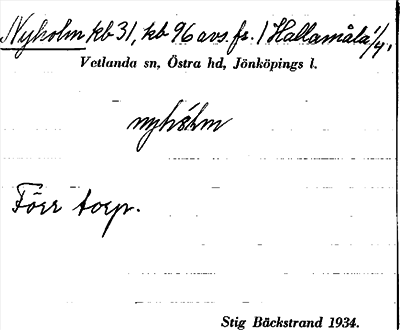 Nyholm kb 31, kb 96 avs. fr. 1 Hallamåla 1/4,
Vetlanda sn, Östra hd, Jönköpings l.
nyhólm
Förr torp.
Stig Bäckstrand 1934.